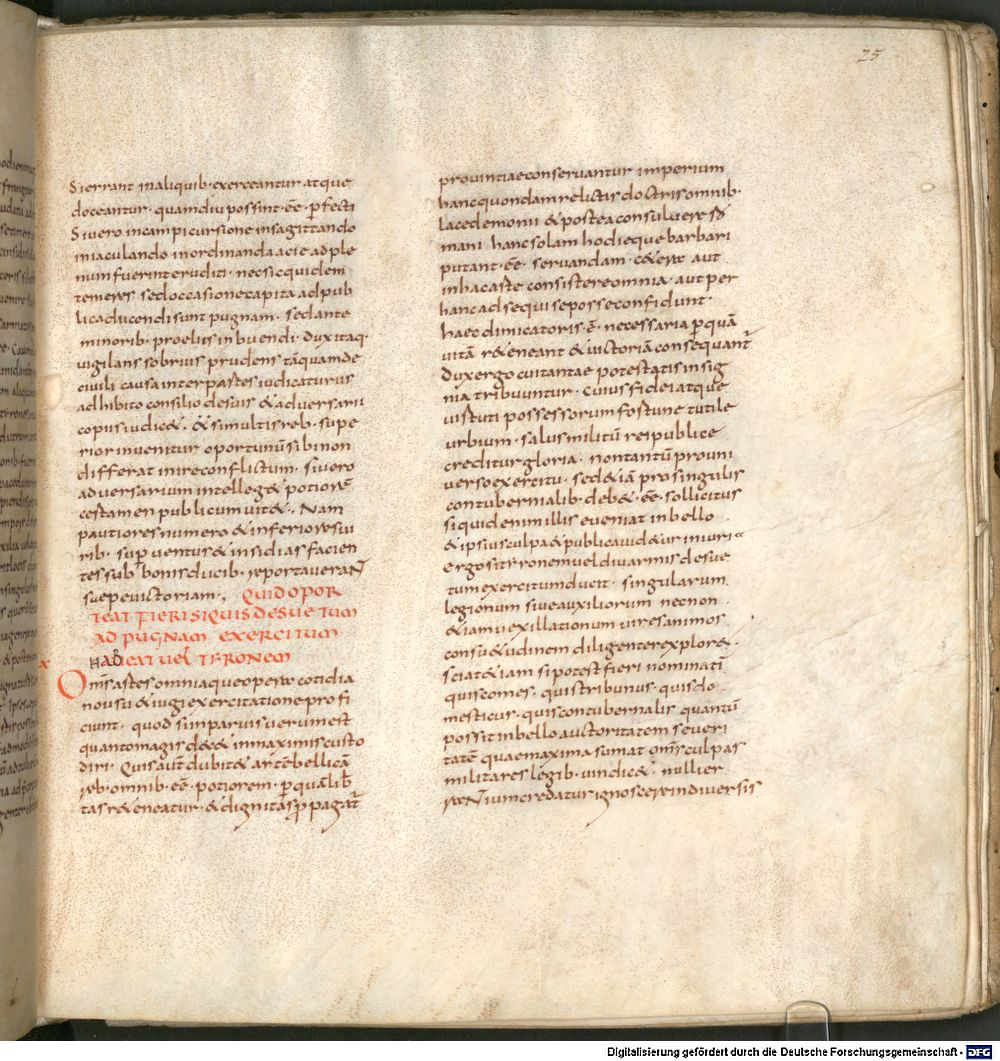 25
Si errant in aliquib· exerceantur atque
doceantur· quamdiu possint· ēē· p̄fecti
Si vero in campicursione in sagittando
in iaculando in ordinanda acie ad ple
num fuerint eruditi· nec sic quidem
temere· sed occasione capita ad pub
lica ducendi sunt pugnam· sed ante
minorib· proeliis inbuendi· dux itaq·
vigilans sobrius prudens tāquam de
civili causa inter partes iudicaturus
adhibito consilio de suis & adversarii
copiis iudic&· & si multis reb· supe
rior invenitur oportunū sibi non
differat inire conflictum· si vero
adversarium intelleg& potiorē
certamen publicum vit&· Nam
pautiores numero & inferiores vi
rib· sup̄ventus & insidias facien
tes sub bonis ducib· reportaverunt
saepe victoriam· QUID OPOR
TEAT FIERI SI QUIS DESUETUM
AD PUGNAM EXERCITUM
HABEAT VEL TIRONEM
x·
Om̄s artes omniaque opere cotidia
no usu & iugi exercitatione profi
ciunt· quod si in parvis verum est
quanto magis deb& in maximis custo
diri· Quis aut̄ dubit& artē bellicā
reb· omnib· ēē· potiorem· p̄ quā lib̄
tas r&eneatur· & dignitas p̄pagat̄
provintiae conservantur imperium
hanc quondam relictis doctris omnib·
lacedemonii & postea consuluere ro
mani hanc solam hodieque barbari
putant· ēē· servandam· c&era aut
in hac arte consistere omnia· aut per
hanc adsequi se posse confidunt·
haec dimicatoris· ē· necessaria p̄ quā
vitā r&eneant & victoriā consequant̄
Dux ergo cui tantae potestatis insig
nia tribuuntur· cuius fidei atque
virtuti possessorum fortune tutile
urbium· salus militū rei publice
creditur gloria· non tantū pro uni
verso exercitu· sed &iā pro singulis
contubernialib· deb&· ēē· sollicitus
siquidem illis eveniat in bello
& ipsius culpa & publica vid&ur iniuria
ergo si tironem vel diu armis desue
tum exercitum ducit· singularum
legionum sive auxiliorum necnon
&iam vexillationum vires animos
consu&udinem diligenter explor&·
sciat &iam si potest fieri nominatī
quis comes· quis tribunus· quis do
mesticus· quis contubernalis quantū
possit in bello auctoritatem severi
tatē quae maxima sumat om̄s culpas
militares legib· vindic&· nulli er
rantium credatur ignoscere in diversis
Digitalisierung gefördert durch die Deutsche Forschungsgemeinschaft - DFG